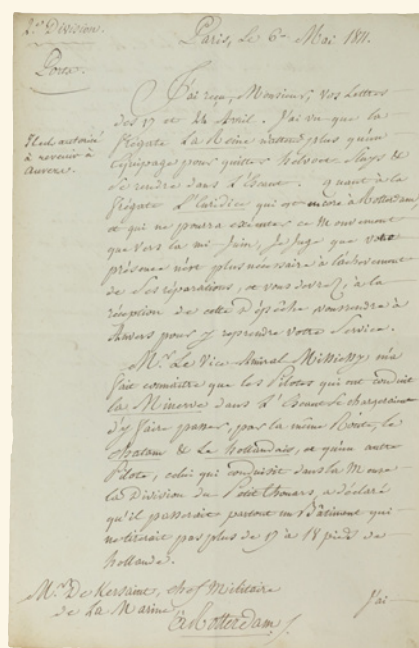 2.e Division.
Paris, Le 6 Mai 1811.
Ports.
J'ai reçu, Monsieur, vos Lettres
des 17 et 24 Avril. J'ai vu que la
Il est autorisé
à revenir à
Anvers.
frégate La Reine n'attend plus qu'un
Equipage pour quitter helvoet Sluys &
Se rendre dans L'Escaut. quant à la
frégate L'Euridice qui est encore à Rotterdam
et qui ne pourra executer ce Mouvement
que vers la mi Juin, Je Juge que votre
présence n'est plus nécessaire à l'achevement
de Ses réparations, et vous devrez, à la
réception de cette Dépêche vous rendre à
Anvers pour y reprendre votre Service.
M.r Le Vice Amiral Missiessy m'a
fait connaitre que les Pilotes qui ont conduit
la Minerve dans L'Escaut se chargeraient
d'y faire passer, par la même Route, le
Chatam & Le hollandais, et qu'un autre
Pilote, celui qui conduisit dans la Meuse
la Division du Petit thouars, a déclaré
qu'il passerait partout un Bâtiment qui
ne tirerait pas plus de 17 à 18 pieds de
hollande.
M.r De Kersaint, chef Militaire
de La Marine
à Rotterdam
J'ai